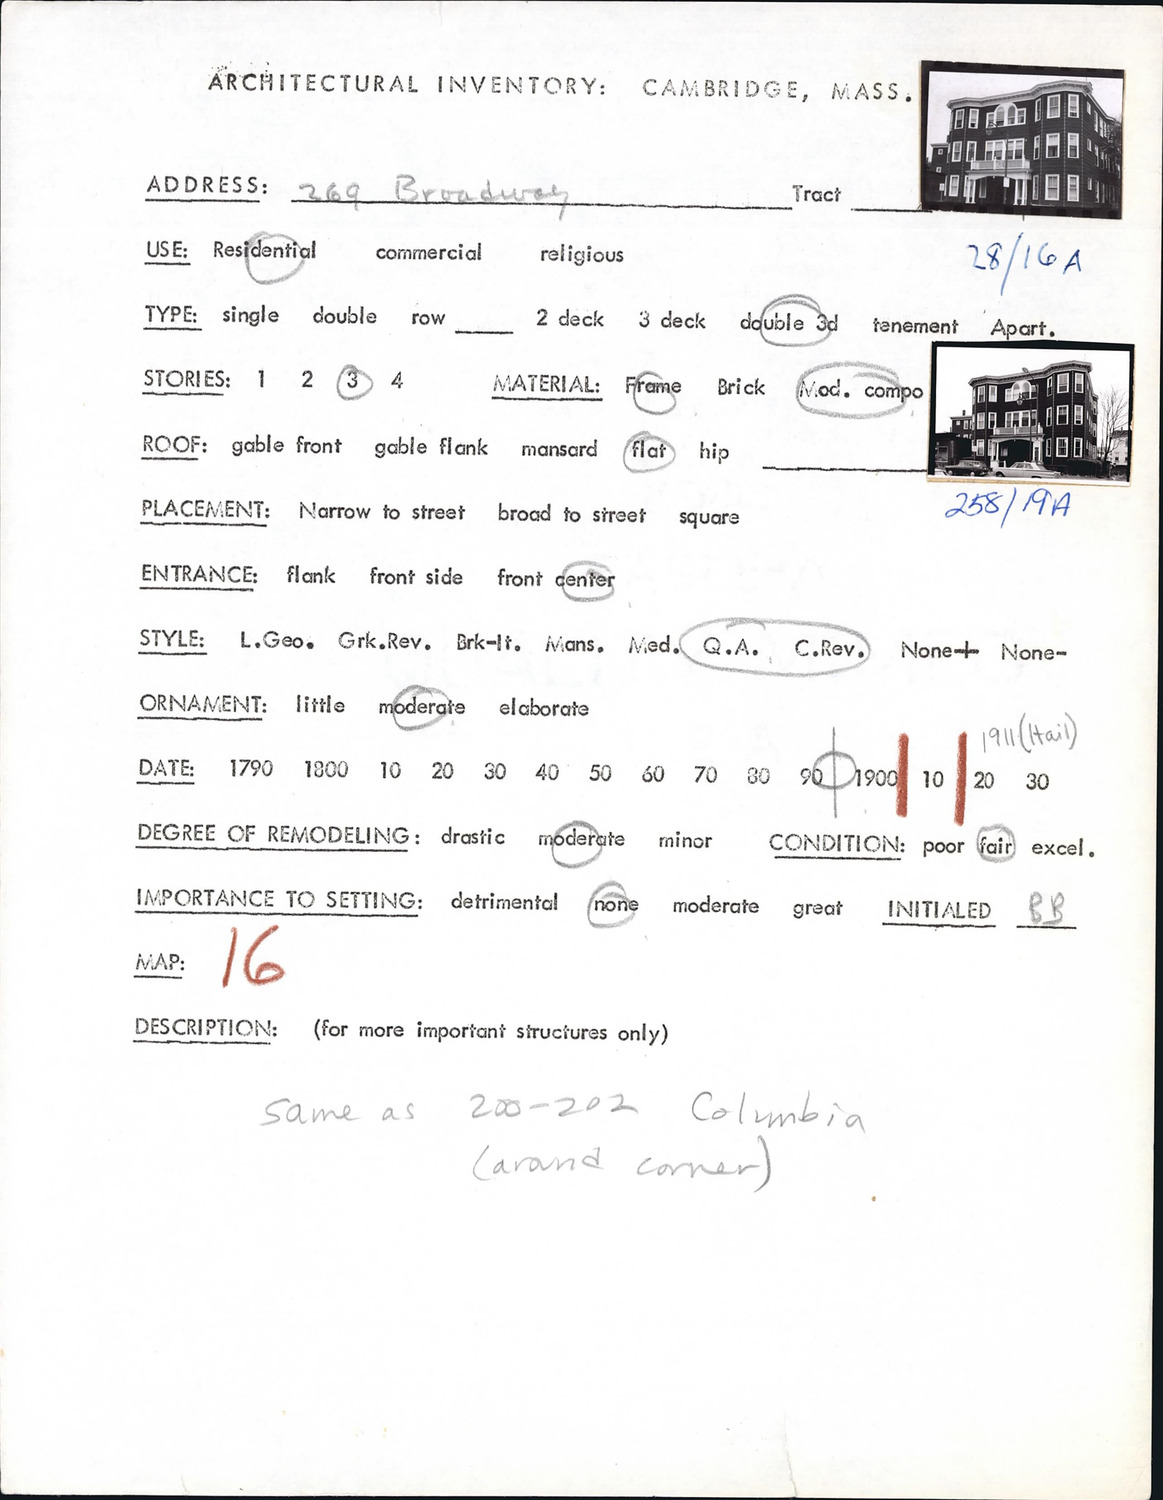 ARCHITECTURAL INVENTORY: CAMBRIDGE, MASS.
ADDRESS: 269 Broadway Tract
28/16A
USE: Residential commercial religious
TYPE: single double row 2 deck 3 deck double 3d tenement Apart.
STORIES: 1 2 3 4 MATERIAL: Frame Brick Mod. compo
ROOF: gable front gable flank mansard flat hip
258/19A
PLACEMENT: Narrow to street broad to street square
ENTRANCE: flank front side front center
STYLE: L.Geo. Grk.Rev. Brk-It. Mans. Med. Q.A. C.Rev. None+ None-
ORNAMENT: little moderate elaborate
1911 (Hail)
DATE: 1790 1800 10 20 30 40 50 60 70 80 90 1900 10 20 30
DEGREE OF REMODELING: drastic moderate minor CONDITION: poor fair excel.
IMPORTANCE TO SETTING: detrimental none moderate great INITIALED BB
MAP: 16
DESCRIPTION: (for more important structures only)
same as 200-202 Columbia
(around corner)